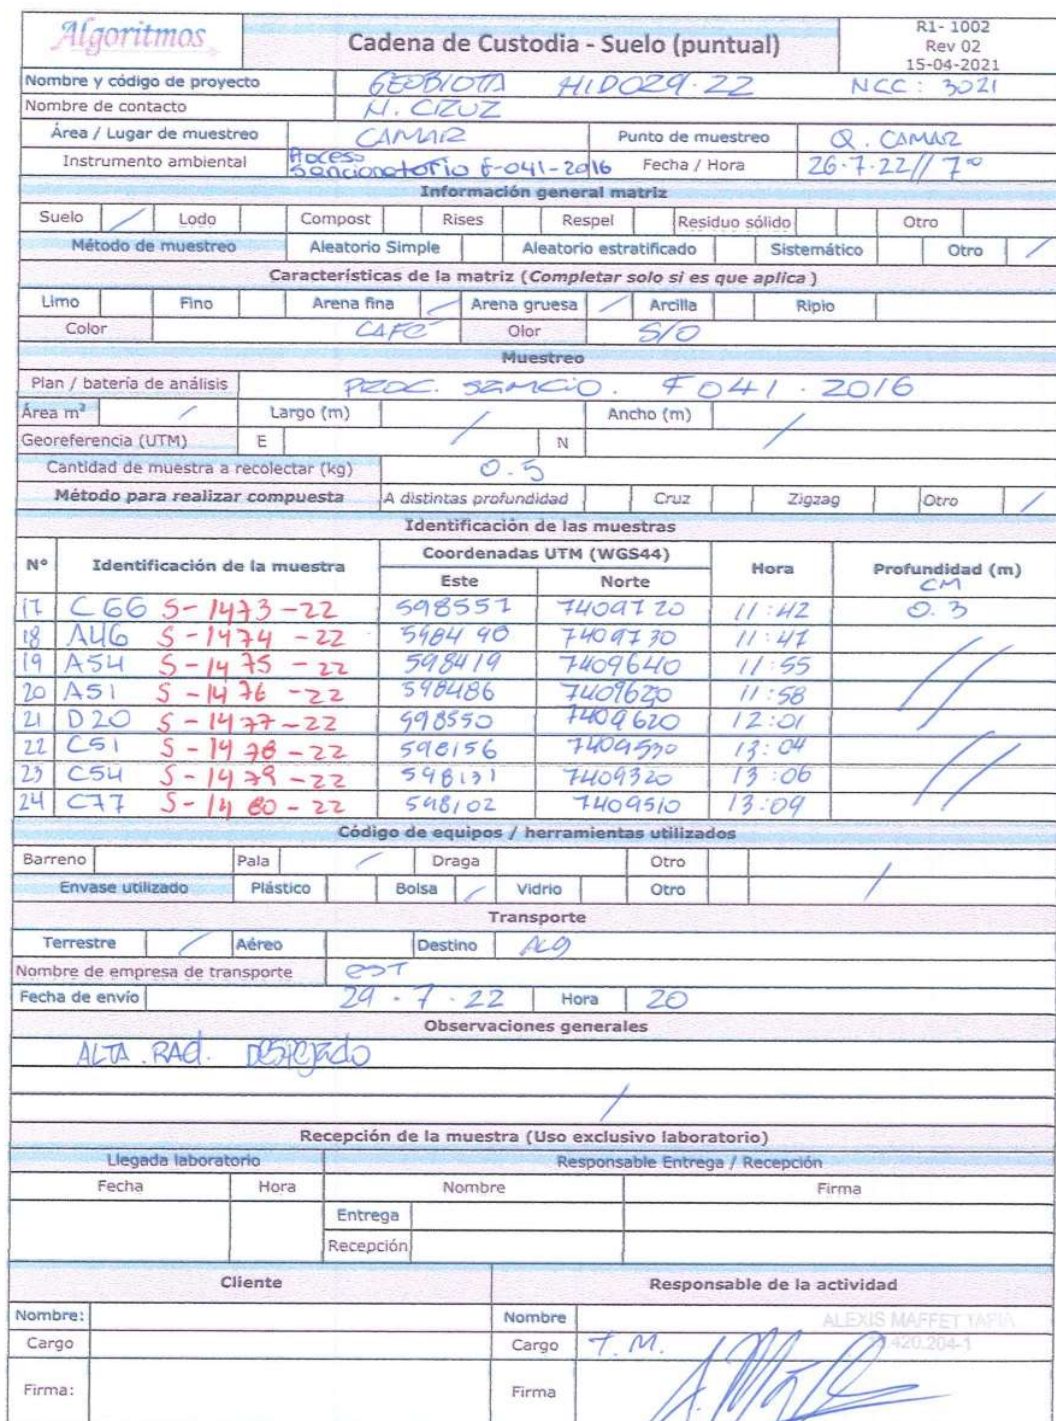 Algoritmos
Cadena de Custodia - Suelo (puntual)
R1- 1002
Rev 02
15-04-2021
Nombre y código de proyecto GEOBIOTA HIDO29.22 NCC: 3021
Nombre de contacto M. CRUZ
Área / Lugar de muestreo CAMAR Punto de muestreo Q. CAMAR
Instrumento ambiental Proceso sancionatorio F-041-2016 Fecha / Hora 26.7.22// 7°°
Información general matriz
Suelo / Lodo Compost Rises Respel Residuo sólido Otro
Método de muestreo Aleatorio Simple Aleatorio estratificado Sistemático Otro /
Características de la matriz (Completar solo si es que aplica )
Limo Fino Arena fina / Arena gruesa / Arcilla Ripio
Color CAFÉ Olor S/O
Muestreo
Plan / batería de análisis PROC. SANCIO. F041.2016
Área m² / Largo (m) / Ancho (m) /
Georeferencia (UTM) E N
Cantidad de muestra a recolectar (kg) 0.5
Método para realizar compuesta A distintas profundidad Cruz Zigzag Otro /
Identificación de las muestras
N° Identificación de la muestra Coordenadas UTM (WGS44) Hora Profundidad (m)
Este Norte CM
17 C66 S-1473-22 598551 7409720 11:42 0.3
18 A46 S-1474-22 598490 7409730 11:47
19 A54 S-1475-22 598419 7409640 11:55
20 A51 S-1476-22 598486 7409620 11:58
21 D20 S-1477-22 598550 7409620 12:01
22 C51 S-1478-22 598156 7409530 13:04
23 C54 S-1479-22 598131 7409320 13:06
24 C77 S-1480-22 598102 7409510 13:09
Código de equipos / herramientas utilizados
Barreno Pala / Draga Otro /
Envase utilizado Plástico Bolsa / Vidrio Otro
Transporte
Terrestre / Aéreo Destino ALG
Nombre de empresa de transporte EST
Fecha de envío 29.7.22 Hora 20
Observaciones generales
ALTA.RAD. DESPEJADO
Recepción de la muestra (Uso exclusivo laboratorio)
Llegada laboratorio Responsable Entrega / Recepción
Fecha Hora Nombre Firma
Entrega
Recepción
Cliente Responsable de la actividad
Nombre: Nombre ALEXIS MAFFET TAPIA
Cargo Cargo T.M. .420.204-1
Firma: Firma